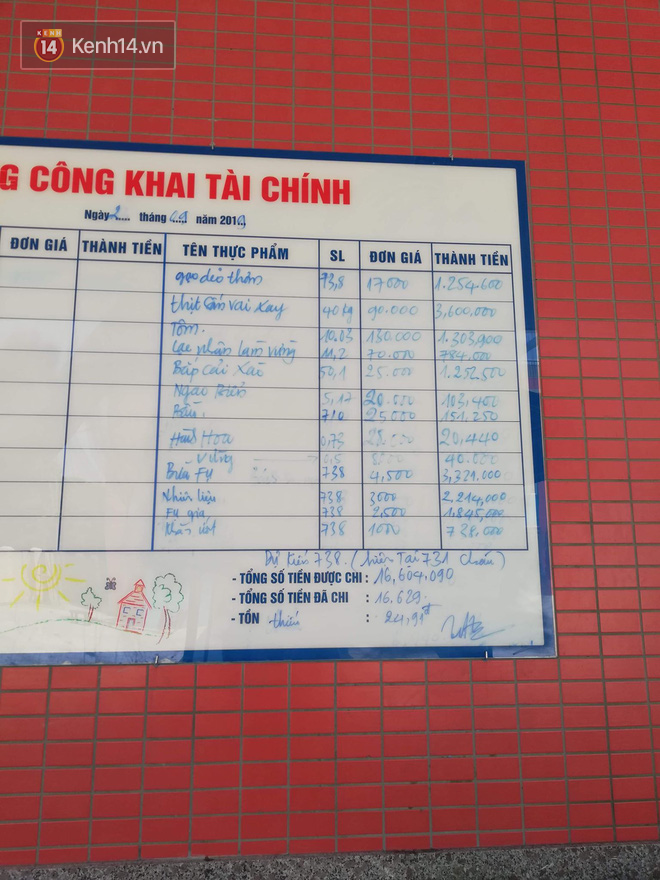 KENH
14 Kenh14.vn
G CÔNG KHAI TÀI CHÍNH
Ngày 2 tháng 9 năm 2019
ĐƠN GIÁ THÀNH TIỀN TÊN THỰC PHẨM SL ĐƠN GIÁ THÀNH TIỀN
gạo dẻo thơm 73,8 17000 1.254.600
thịt sấn vai xay 40kg 90.000 3,600,000
Tôm. 10.03 130.000 1.303,900
Lạc nhân làm vừng 11,2 70.000 784.000
Bắp cải xào 50,1 25.000 1.252,500
Ngao 5,17 20.000 103,400
25000 151.250
Hoa 0,73 28.000 20,440
Vừng 0,5 40.000
738 4,500 3,321.000
Nhiên liệu 738 3000 2,214,000
gia 738 2,500 1,845,000
Khăn ướt 738 1000 738.000
Dự tiến 738. (hiện tại 731 cháu)
- TỔNG SỐ TIỀN ĐƯỢC CHI : 16,604,090
- TỔNG SỐ TIỀN ĐÃ CHI : 16.629
- TỒN thiếu : 24,91đ